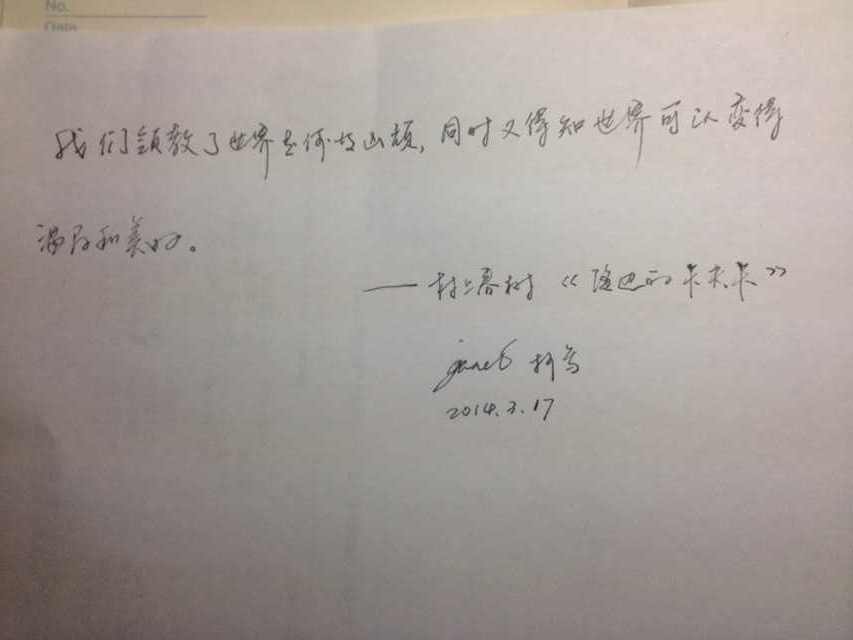 No.
Date
我们领教了世界是何等凶顽，同时又得知世界可以变得
温存和美好。
——村上春树《海边的卡夫卡》
janet
2014.3.17